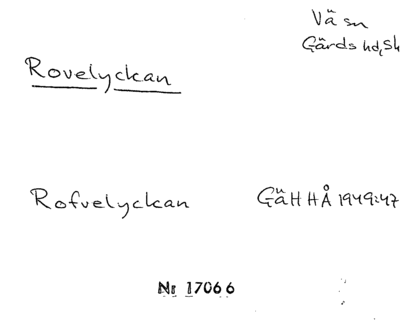 Vä sn
Gärds hd, Sk
Rovelyckan
Rofvelyckan GäHHÅ 1949:47
Nr 17066